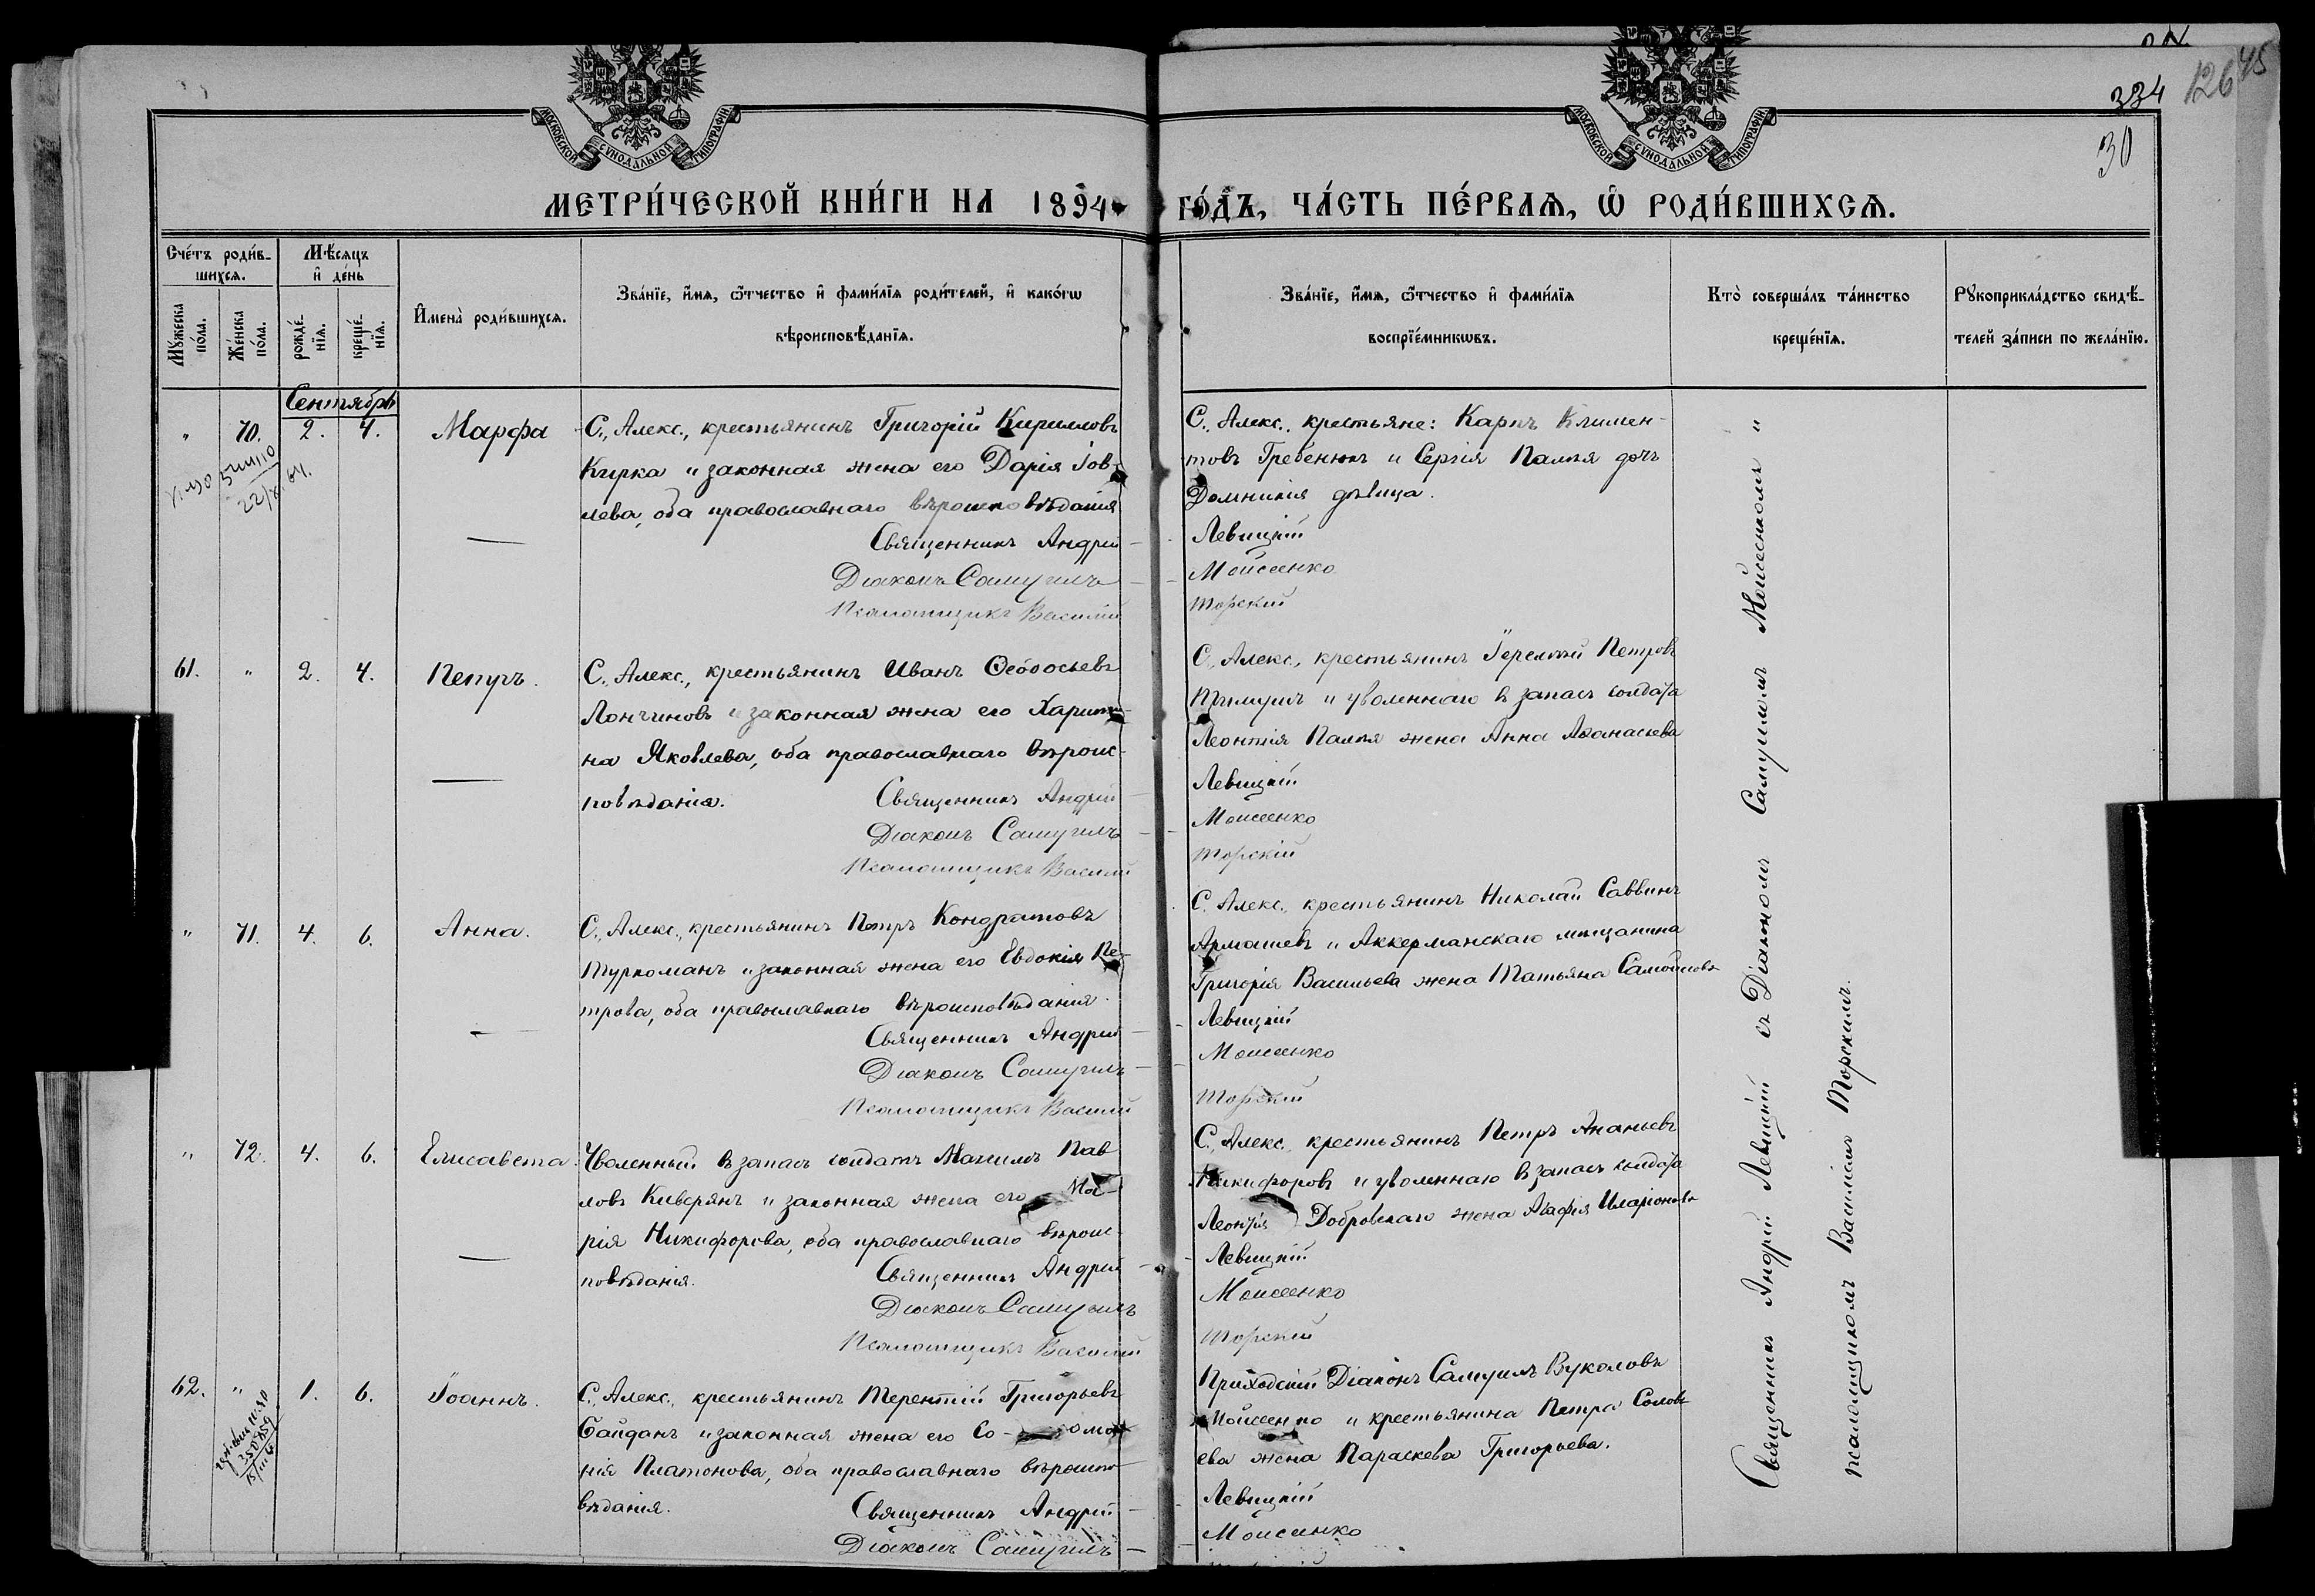 334
126
45
30
МОСКОВСКОЙ СѴНОДАЛЬНОЙ ТИПОГРАФІИ
МОСКОВСКОЙ СѴНОДАЛЬНОЙ ТИПОГРАФІИ
МЕТРИ́ЧЕСКОЙ КНИ́ГИ НА 1894 ГО́ДЪ, ЧА́СТЬ ПЕ́РВАѦ, Ѡ РОДИ́ВШИХСѦ.
Сче́тъ роди́в-
шихсѧ.
Мꙋ́жеска по́ла.
Же́нска по́ла.
Мѣ́сѧцъ и҆ де́нь
рожде́-нїѧ.
креще́-нїѧ.
И҆мена̀ роди́вшихсѧ.
Зва́нїе, и҆́мѧ, ѻ҆́тчество и҆ фами́лїѧ роди́телей, и҆ како́гѡ
вѣроисповѣ́данїѧ.
Зва́нїе, и҆́мѧ, ѻ҆́тчество и҆ фами́лїѧ
воспрїе́мникѡвъ.
Кто̀ соверша́лъ та́инство
креще́нїѧ.
Рꙋкоприкла́дство свидѣ́-
телей за́писи по жела́нїю.
Сентябрь
" 70. 2. 4. Марфа
С., Алекс., крестьянинъ Григорій Кирилловъ
Кирка и законная жена его Дарія Іов-
лева, оба православнаго вѣроисповѣданія
Священникъ Андрій
Діаконъ Самуилъ
Псаломщикъ Василій
С., Алекс., крестьяне: Карпъ Климен-
товъ Гребенюкъ и Сергія Палія дочь
Домникія дѣвица.
Левицкій
Моисеенко
Торскій
61. " 2. 4. Петръ.
С., Алекс., крестьянинъ Иванъ Ѳеодосьевъ
Лончиновъ и законная жена его Харити-
на Яковлева, оба православнаго вѣроис-
повѣданія. Священникъ Андрій
Діаконъ Самуилъ
Псаломщикъ Василій
С., Алекс., крестьянинъ Іеремій Петровъ
и уволеннаго в запасъ солдата
Леонтія Палія жена Анна Аѳанасьева
Левицкій
Моисеенко
Торскій
" 71. 4. 6. Анна.
С., Алекс., крестьянинъ Петръ Кондратовъ
Туркоманъ и законная жена его Евдокія Пе-
трова, оба православнаго вѣроисповѣданія.
Священникъ Андрій
Діаконъ Самуилъ
Псаломщикъ Василій
С. Алекс., крестьянинъ Николай Саввинъ
Армашевъ и Аккерманскаго мѣщанина
Григорія Васильева жена Татьяна Самойлова
Левицкій
Моисеенко
Торскій
" 72. 4. 6. Елисавета.
Уволенный в запасъ солдатъ Максимъ Пав-
ловъ Киверянъ и законная жена его Ма-
рія Никифорова, оба православнаго вѣроис-
повѣданія. Священникъ Андрій
Діаконъ Самуилъ
Псаломщикъ Василій
С., Алекс., крестьянинъ Петръ Ананьевъ
Никифоровъ и уволеннаго в запасъ солдата
Леонтія Добровскаго жена Агафія Иларіонова
Левицкій
Моисеенко
Торскій
62. " 1. 6. Іоаннъ.
С., Алекс., крестьянинъ Терентій Григорьевъ
Сайданъ и законная жена его Со- ломо-
нія Платонова, оба православнаго вѣроиспо-
вѣданія. Священникъ Андрій
Діаконъ Самуилъ
Приходскій Діаконъ Самуилъ Вуколовъ
Моисеенко и крестьянина Петра Соловь
ева жена Параскева Григорьева.
Левицкій
Моисеенко
Священникъ Андрій Левицкій съ Діакономъ Самуиломъ Мойсеенкомъ и
псаломщикомъ Василіемъ Торскимъ.